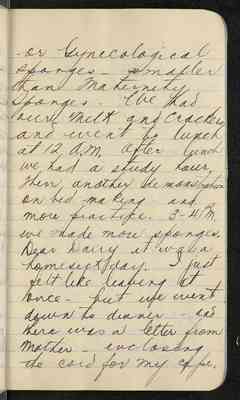 or Gynecological
sponges - smaller
than Maternity
Sponges. We had
our milk and crackers
and went to lunch
at 12 A.M. After lunch
we had a study hour,
then another demonstration
on bed making and
more practice. 3-4 P.M.
we made more sponges.
Dear Dairy it was a
homesick day. I just
felt like leaving at
once - but we went
down to dinner - and
here was a letter from
Mother - enclosing
the cord for my cape.